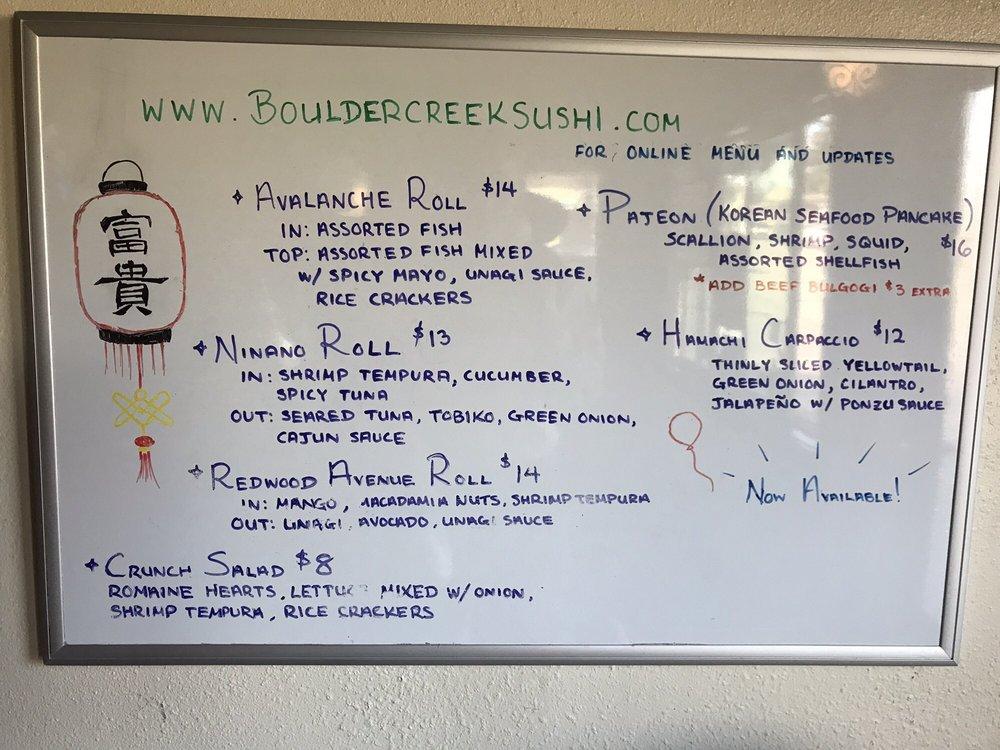 WWW.BOULDERCREEKSUSHI.COM
FOR ONLINE MENU AND UPDATES
富
貴
AVALANCHE ROLL $14
IN: ASSORTED FISH
TOP: ASSORTED FISH MIXED
W/ SPICY MAYO, UNAGI SAUCE,
RICE CRACKERS
NINANO ROLL $13
IN: SHRIMP TEMPURA, CUCUMBER,
SPICY TUNA
OUT: SEARED TUNA, TOBIKO, GREEN ONION,
CAJUN SAUCE
REDWOOD AVENUE ROLL $14
IN: MANGO, MACADAMIA NUTS, SHRIMP TEMPURA
OUT: UNAGI, AVOCADO, UNAGI SAUCE
CRUNCH SALAD $8
ROMAINE HEARTS, LETTUCE MIXED W/ ONION,
SHRIMP TEMPURA, RICE CRACKERS
PAJEON (KOREAN SEAFOOD PANCAKE)
SCALLION, SHRIMP, SQUID, $16
ASSORTED SHELLFISH
*ADD BEEF BULGOGI $3 EXTRA
HAMACHI CARPACCIO $12
THINLY SLICED YELLOWTAIL,
GREEN ONION, CILANTRO,
JALAPEÑO W/ PONZU SAUCE
NOW AVAILABLE!